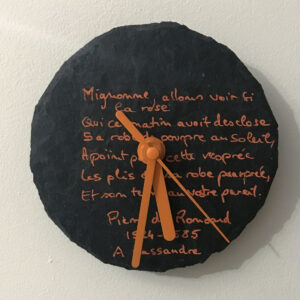 Mignonne, allons voir si
la rose
Qui ce matin avoit desclose
Sa robe de pourpre au Soleil,
A point p cette vesprée
Les plis sa robe pourprée,
Et son te au votre pareil.
Pierre de Ronsard
1524-1585
A Cassandre